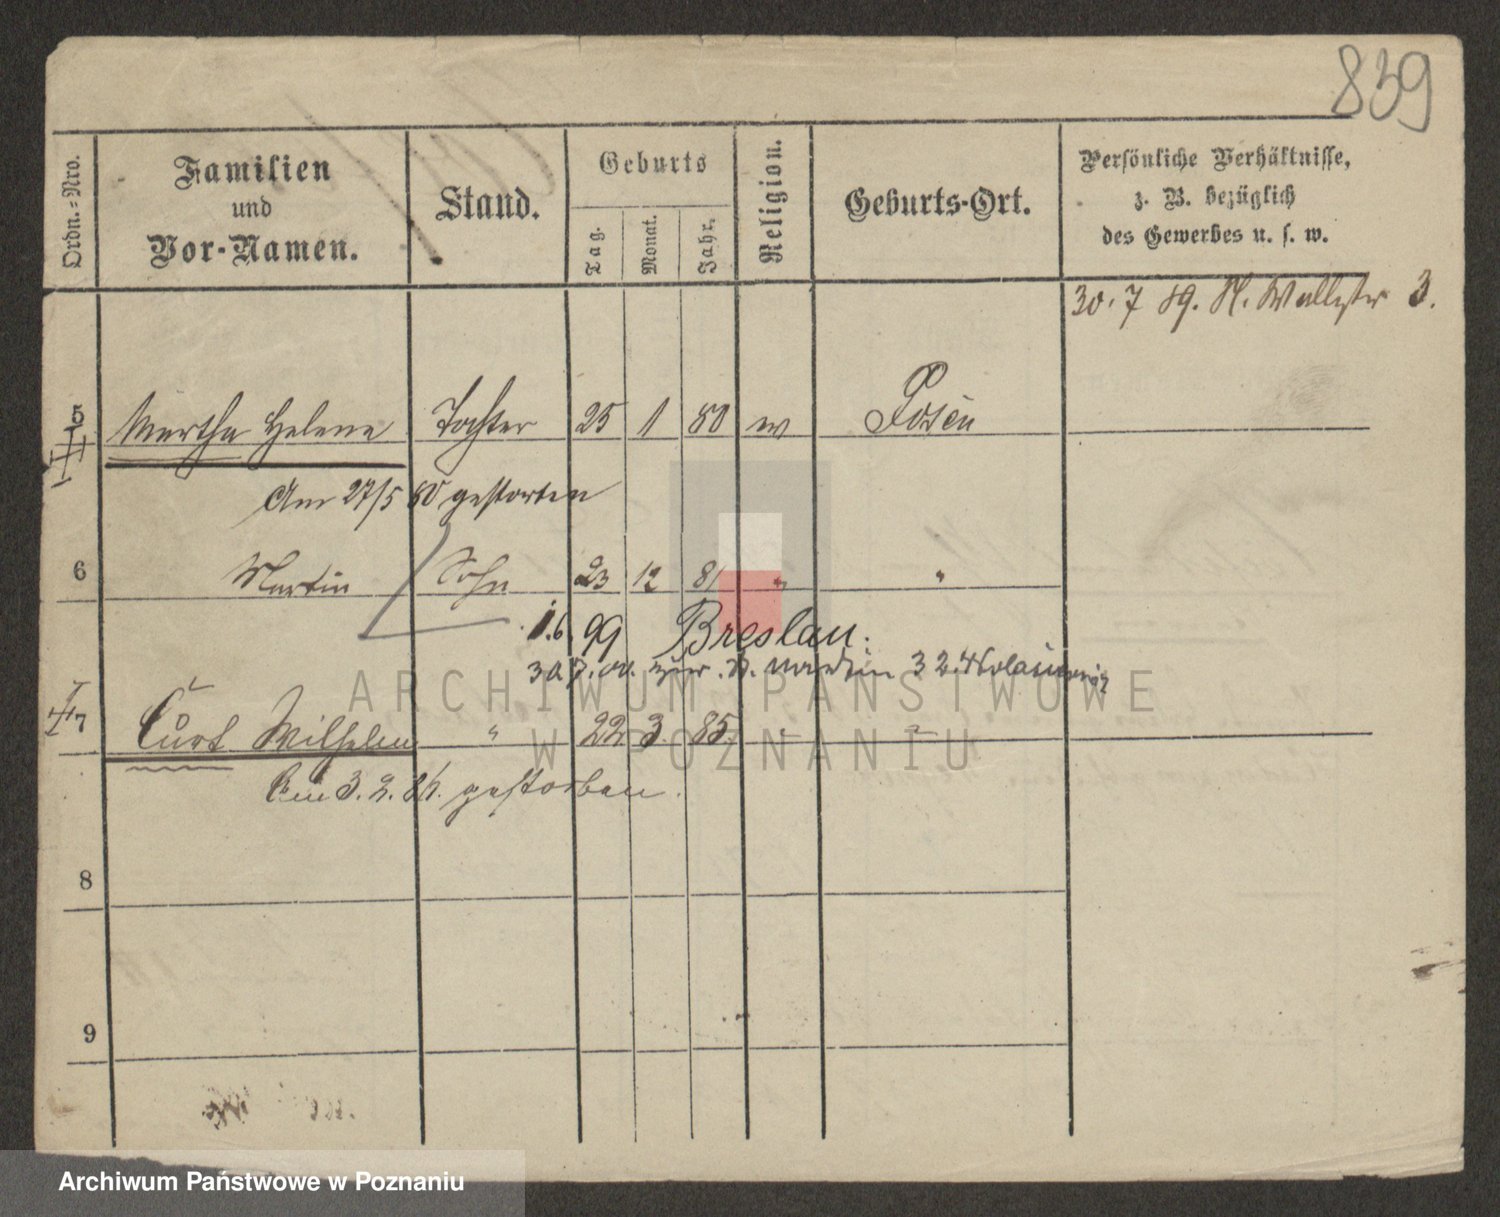 839
Ordn.-Nro.
Familien
und
Vor-Namen.
Stand.
Geburts
Tag.
Monat.
Jahr.
Religion.
Geburts-Ort.
Persönliche Verhältnisse,
z. B. bezüglich
des Gewerbes u. s. w.
30. 7 89. St. Wallstr 3.
5 Martha Helene Tochter 25 1 80 ev Posen
Am 27/5 80 gestorben
6 Martin Sohn 23 12 81 " "
1.6. 99 Breslau.
30.7. St. Martin 32.
7 Curt Wilhelm " 22. 3. 85. " "
Am 3. 2. 86. gestorben.
8
9
ARCHIWUM PAŃSTWOWE
W POZNANIU
Archiwum Państwowe w Poznaniu